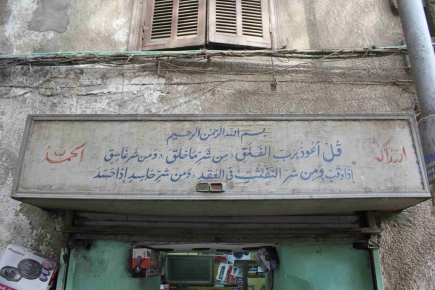 بسم الله الرحمن الرحيم
قل أعوذ برب الفلق من شر ما خلق ومن شر غاسق
إذا وقب ومن شر النفثت في العقد ومن شر حاسد إذا حسد
الحمد لله